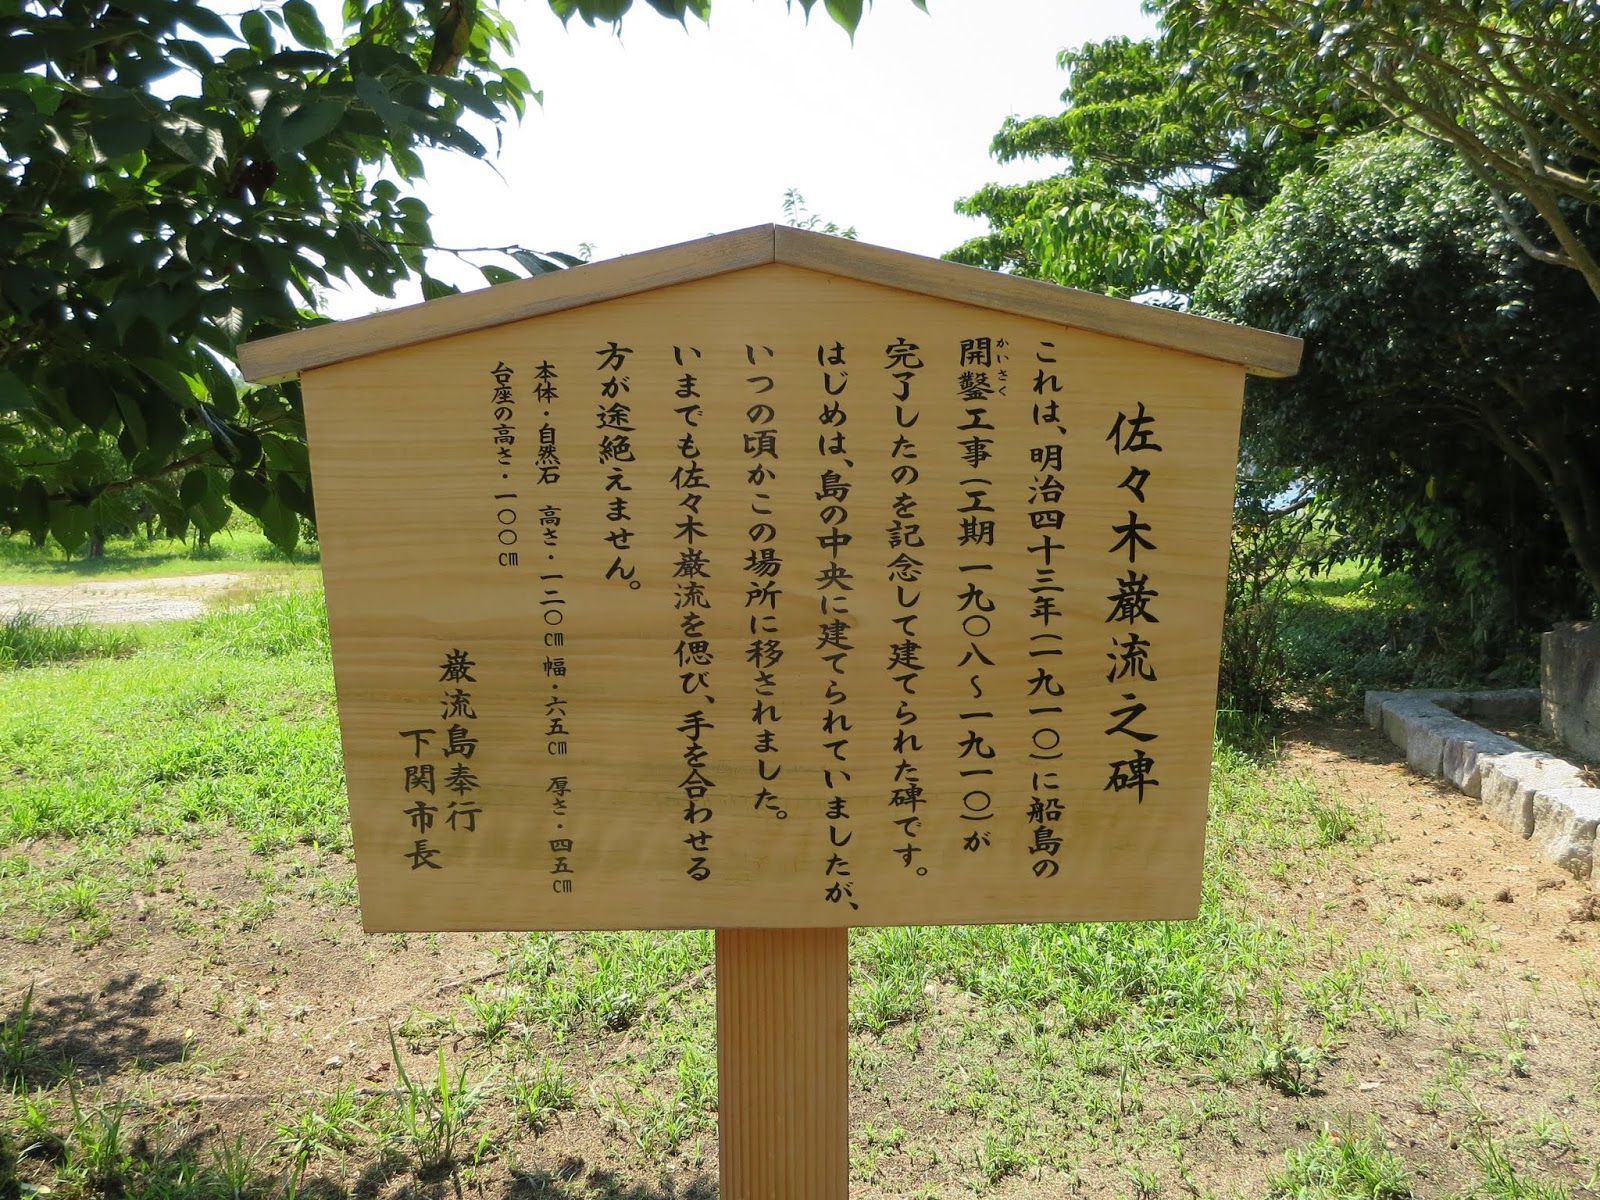 佐々木巌流之碑
これは、明治四十三年(一九一〇)に船島の
開鑿工事(工期一九〇八〜一九一〇)が
かいさく
完了したのを記念して建てられた碑です。
はじめは、島の中央に建てられていましたが、
いつの頃かこの場所に移されました。
いまでも佐々木巌流を偲び、手を合わせる
方が途絶えません。
本体・自然石 高さ・一二〇㎝ 幅・六五㎝ 厚さ・四五㎝
台座の高さ・一〇〇㎝
巌流島奉行
下関市長